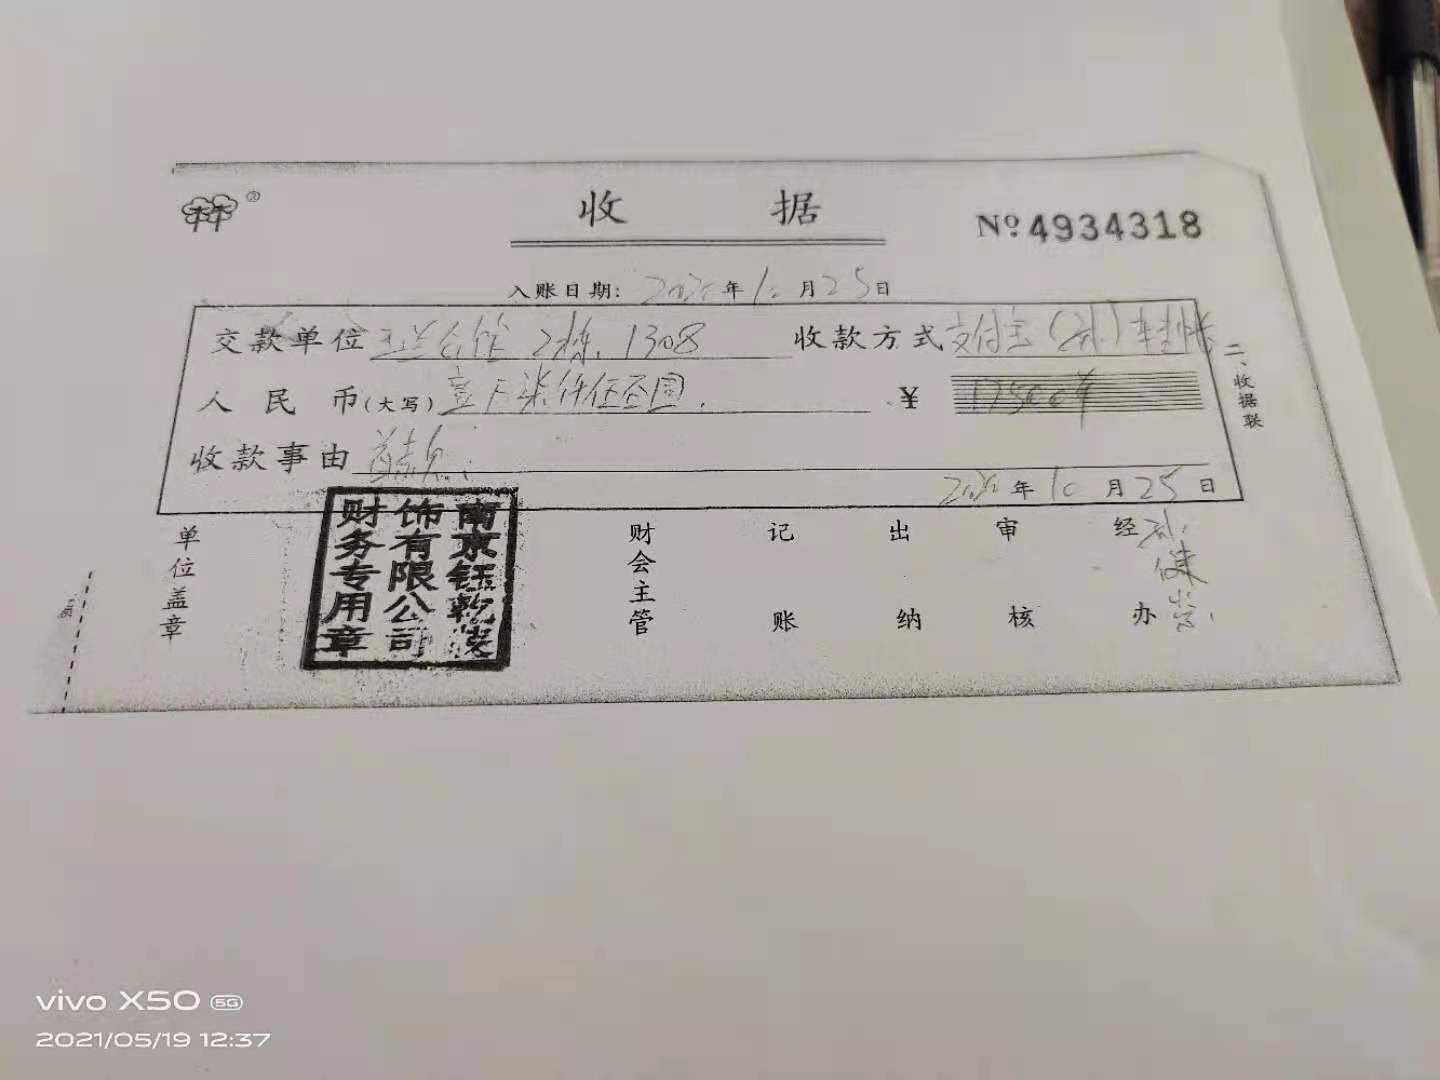 收 据
№ 4934318
入账日期: 2020年10月25日
交款单位 2栋. 1308 收款方式 支付宝
人民币(大写) 壹万柒仟伍佰圆. ¥ 17500
收款事由 首款.
2020年10月25日
二、收据联
单位盖章
南京钰乾装
饰有限公司
财务专用章
财会主管 记账 出纳 审核 经办
vivo X50 5G
2021/05/19 12:37